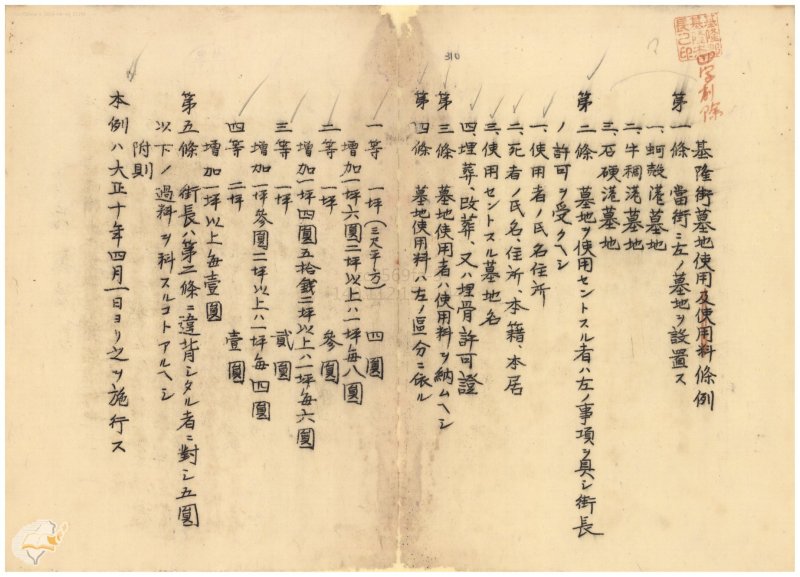 基隆街墓地使用及使用料條例
四字削除
第一條 當街ニ左ノ墓地ヲ設置ス
一、蚵殼港墓地
二、牛稠港墓地
三、石硬港墓地
第二條 墓地ヲ使用セントスル者ハ左ノ事項ヲ具シ街長
ノ許可ヲ受クヘシ
一、使用者ノ氏名住所
二、死者ノ氏名、住所、本籍、本居
三、使用セントスル墓地名
四、埋葬、改葬、又ハ埋骨許可證
第三條 墓地使用者ハ使用料ヲ納ムヘシ
第四條 墓地使用料ハ左ノ區分ニ依ル
310
一等 一坪(三尺平方) 四圓
增加一坪六圓二坪以上ハ一坪每八圓
二等 一坪 參圓
增加一坪四圓五拾錢二坪以上ハ一坪每六圓
三等 一坪 貳圓
增加一坪參圓二坪以上ハ一坪每四圓
四等 二坪 壹圓
增加一坪以上每壹圓
第五條 街長ハ第二條ニ違背シタル者ニ對シ五圓
以下ノ過料ヲ科スルコトアルヘシ
附則
本例ハ大正十年四月一日ヨリ之ヲ施行ス